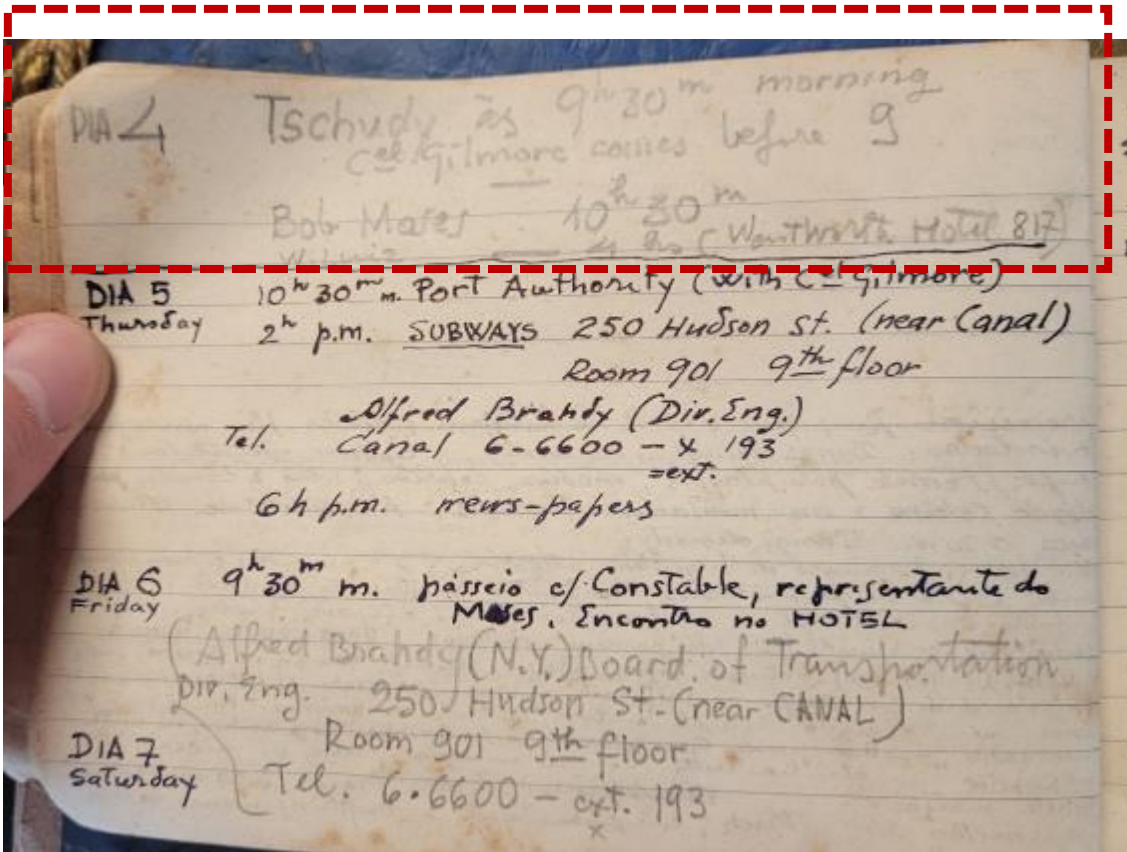 DIA 4 Tschudy às 9h30m morning
Cel Gilmore comes before 9
Bob Moses 10h30m
W. Luiz — 4 hs (Wentworth Hotel 817)
DIA 5 10h30m m. Port Authority (with Cel Gilmore)
Thursday 2h p.m. SUBWAYS 250 Hudson st. (near Canal)
Room 901 9th floor
Alfred Brahdy (Div. Eng.)
Tel. Canal 6-6600 – x 193
=ext.
6h p.m. news-papers
DIA 6 9h30m m. passeio c/ Constable, representante do
Friday Moses. Encontro no HOTEL
(Alfred Brahdy (N.Y.) Board. of Transportation
Div. Eng. 250 Hudson St. (near CANAL)
DIA 7 Room 901 9th floor
Saturday Tel. 6.6600 – ext. 193
x